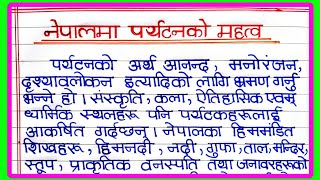 नेपालमा पर्यटनको महत्व
पर्यटनको अर्थ आनन्द, मनोरंजन,
दृश्यावलोकन इत्यादिको लागि भ्रमण गर्नु
भन्ने हो। संस्कृति, कला, ऐतिहासिक एवम्
धार्मिक स्थलहरू पनि पर्यटकहरूलाई
आकर्षित गर्दछन्। नेपालका हिममंडित
शिखहरू, हिमनदी, नदी, गुफा, ताल, मन्दिर,
स्तूप, प्राकृतिक वनस्पति तथा जनावरहरूको